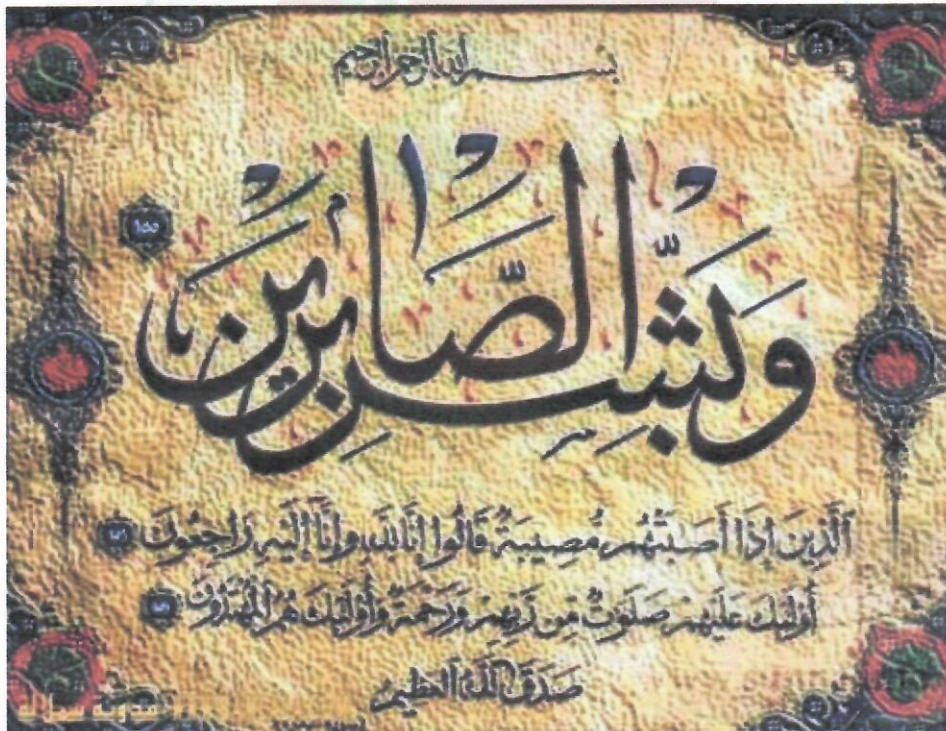 بسم الله الرحمن الرحيم
وَبَشِّرِ الصَّابِرِينَ ١٥٥
ٱلَّذِينَ إِذَآ أَصَٰبَتۡهُم مُّصِيبَةٞ قَالُوٓاْ إِنَّا لِلَّهِ وَإِنَّآ إِلَيۡهِ رَٰجِعُونَ ١٥٦
أُوْلَٰٓئِكَ عَلَيۡهِمۡ صَلَوَٰتٞ مِّن رَّبِّهِمۡ وَرَحۡمَةٞۖ وَأُوْلَٰٓئِكَ هُمُ ٱلۡمُهۡتَدُونَ ١٥٧
صَدَقَ ٱللَّهُ ٱلْعَظِيمُ